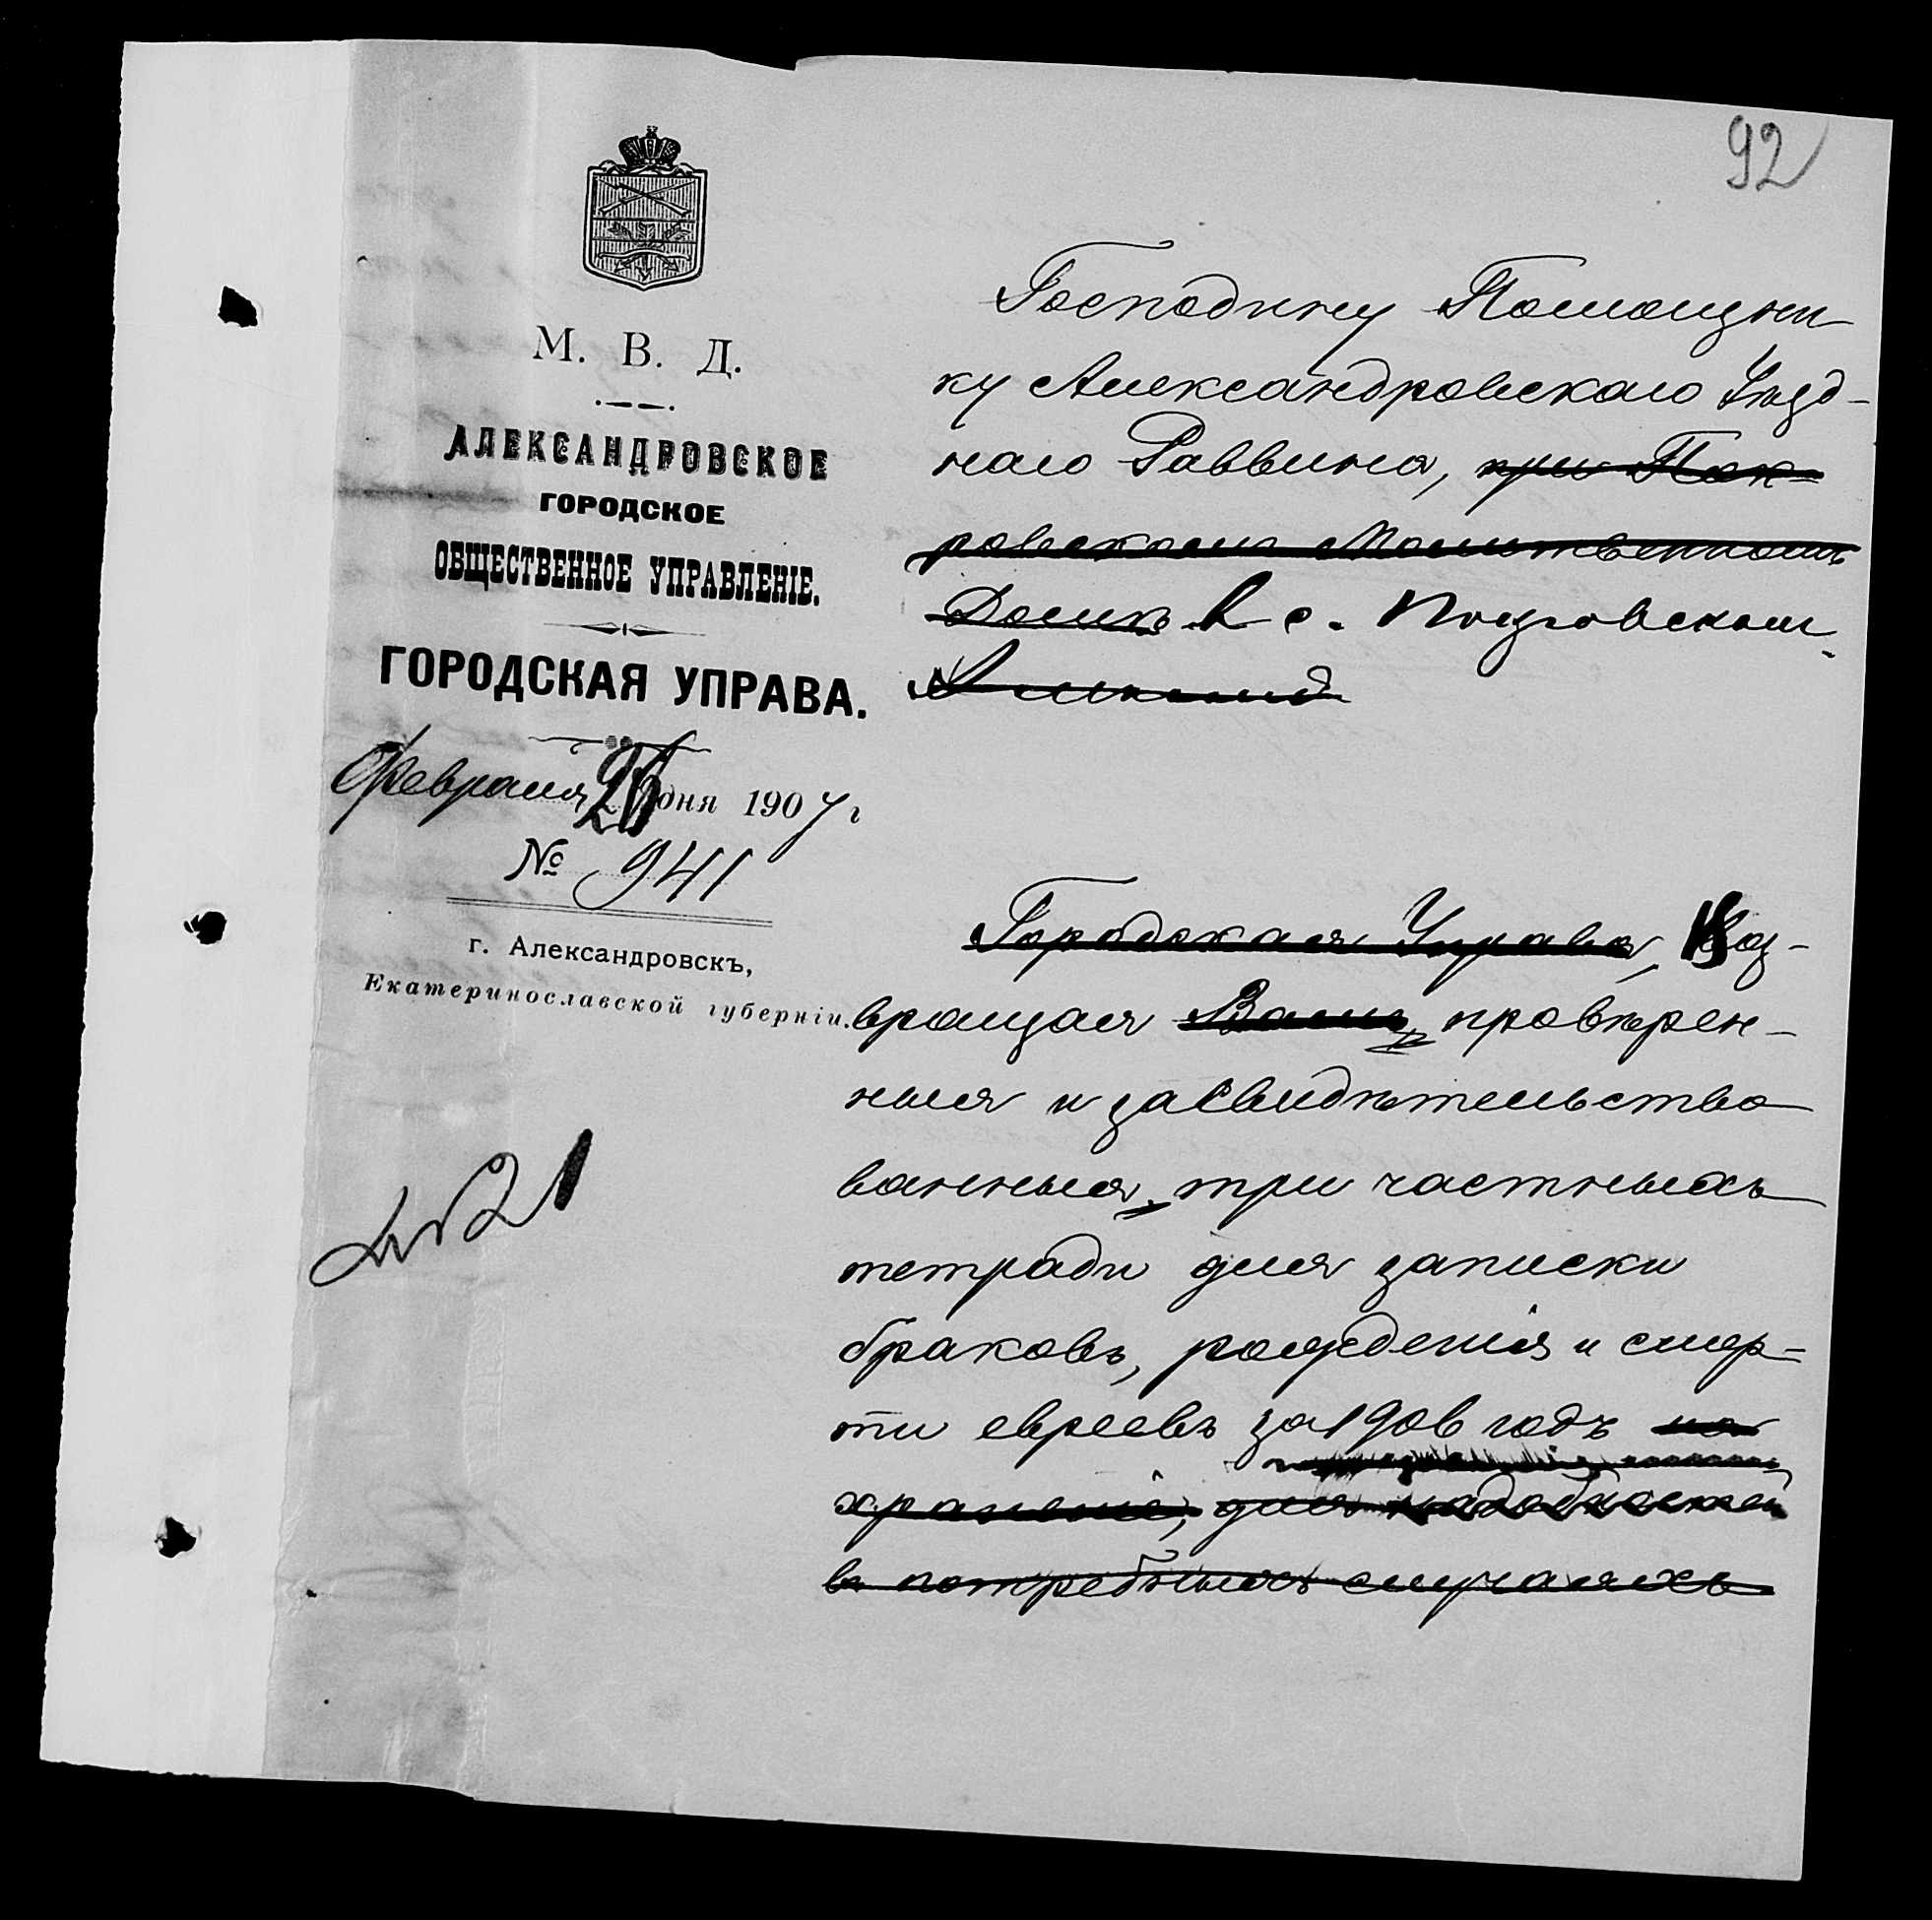 92
М. В. Д.
АЛЕКСАНДРОВСКОЕ
ГОРОДСКОЕ
ОБЩЕСТВЕННОЕ УПРАВЛЕНІЕ.
ГОРОДСКАЯ УПРАВА.
Февраля 26 дня 1907 г
№ 941
г. Александровскъ,
Екатеринославской губерніи.
Господину Помощни
ку Александровскаго Уѣзд-
наго Раввина, при Пок-
ровскомъ Молитвенномъ
Домѣ в с. Покровском
Городская Управа, Воз-
вращая Вамъ, провѣрен-
ныя и засвидѣтельство
ванныя, три частныхъ
тетради для записки
браковъ, рожденія и смер-
ти евреевъ за 1906 годъ на
храненіе, для надобностей
в потребныхъ случаяхъ